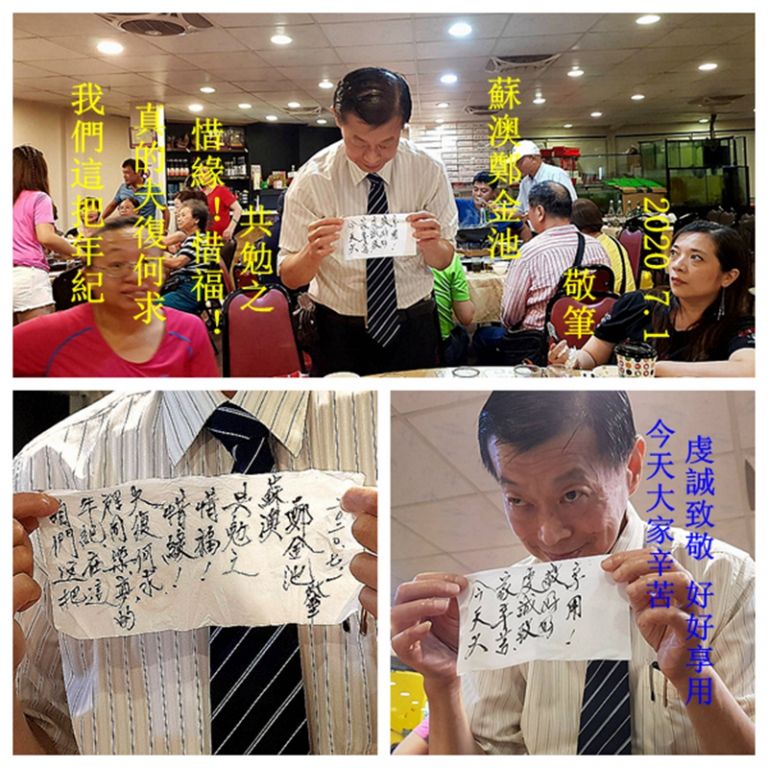 我們這把年紀
真的夫復何求
惜緣！惜福！
共勉之
蘇澳鄭金池
敬筆
2020.7.1
今天大
家辛苦
虔誠致
敬好好
享用！
咱們這把
年紀在這
真的
夫復何求
惜緣！
惜福！
共勉之
蘇澳
鄭金池
敬筆
二〇二〇.七.一
今天大
家辛苦
虔誠致
敬好好
享用！
今天大家辛苦
虔誠致敬 好好享用